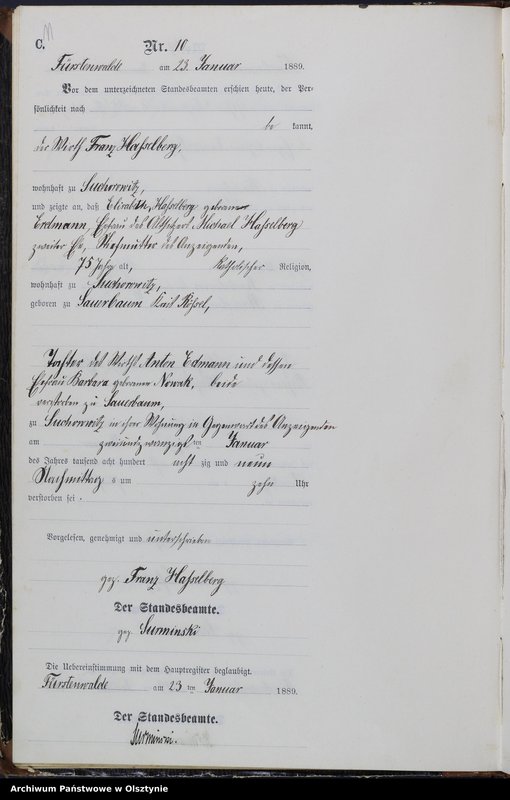 C.
Nr. 10
Fürstenwalde am 23. Januar 1889.
Vor dem unterzeichneten Standesbeamten erschien heute, der Per-
sönlichkeit nach
be kannt,
der Wirth Franz Hasselberg,
wohnhaft zu Suchorowitz,
und zeigte an, daß Elisabeth Hasselberg geborene
Erdmann, Ehefrau des Altsitzers Michael Hasselberg
zweiter Ehe, Stiefmutter des Anzeigenden,
75 Jahre alt, katholischer Religion,
wohnhaft zu Suchorowitz,
geboren zu Sauerbaum Kreis Rössel,
Tochter des Wirths Anton Erdmann und dessen
Ehefrau Barbara geborener Nowak, beide
verstorben zu Sauerbaum,
zu Suchorowitz in ihrer Wohnung in Gegenwart des Anzeigenden
am zweiundzwanzigsten Januar
des Jahres tausend acht hundert acht zig und neun
Nachmittag s um zehn Uhr
verstorben sei.
Vorgelesen, genehmigt und unterschrieben
gez. Franz Hasselberg
Der Standesbeamte.
gez. Surminski
Die Uebereinstimmung mit dem Hauptregister beglaubigt.
Fürstenwalde am 23 ten Januar 1889.
Der Standesbeamte.
Surminski.
Archiwum Państwowe w Olsztynie